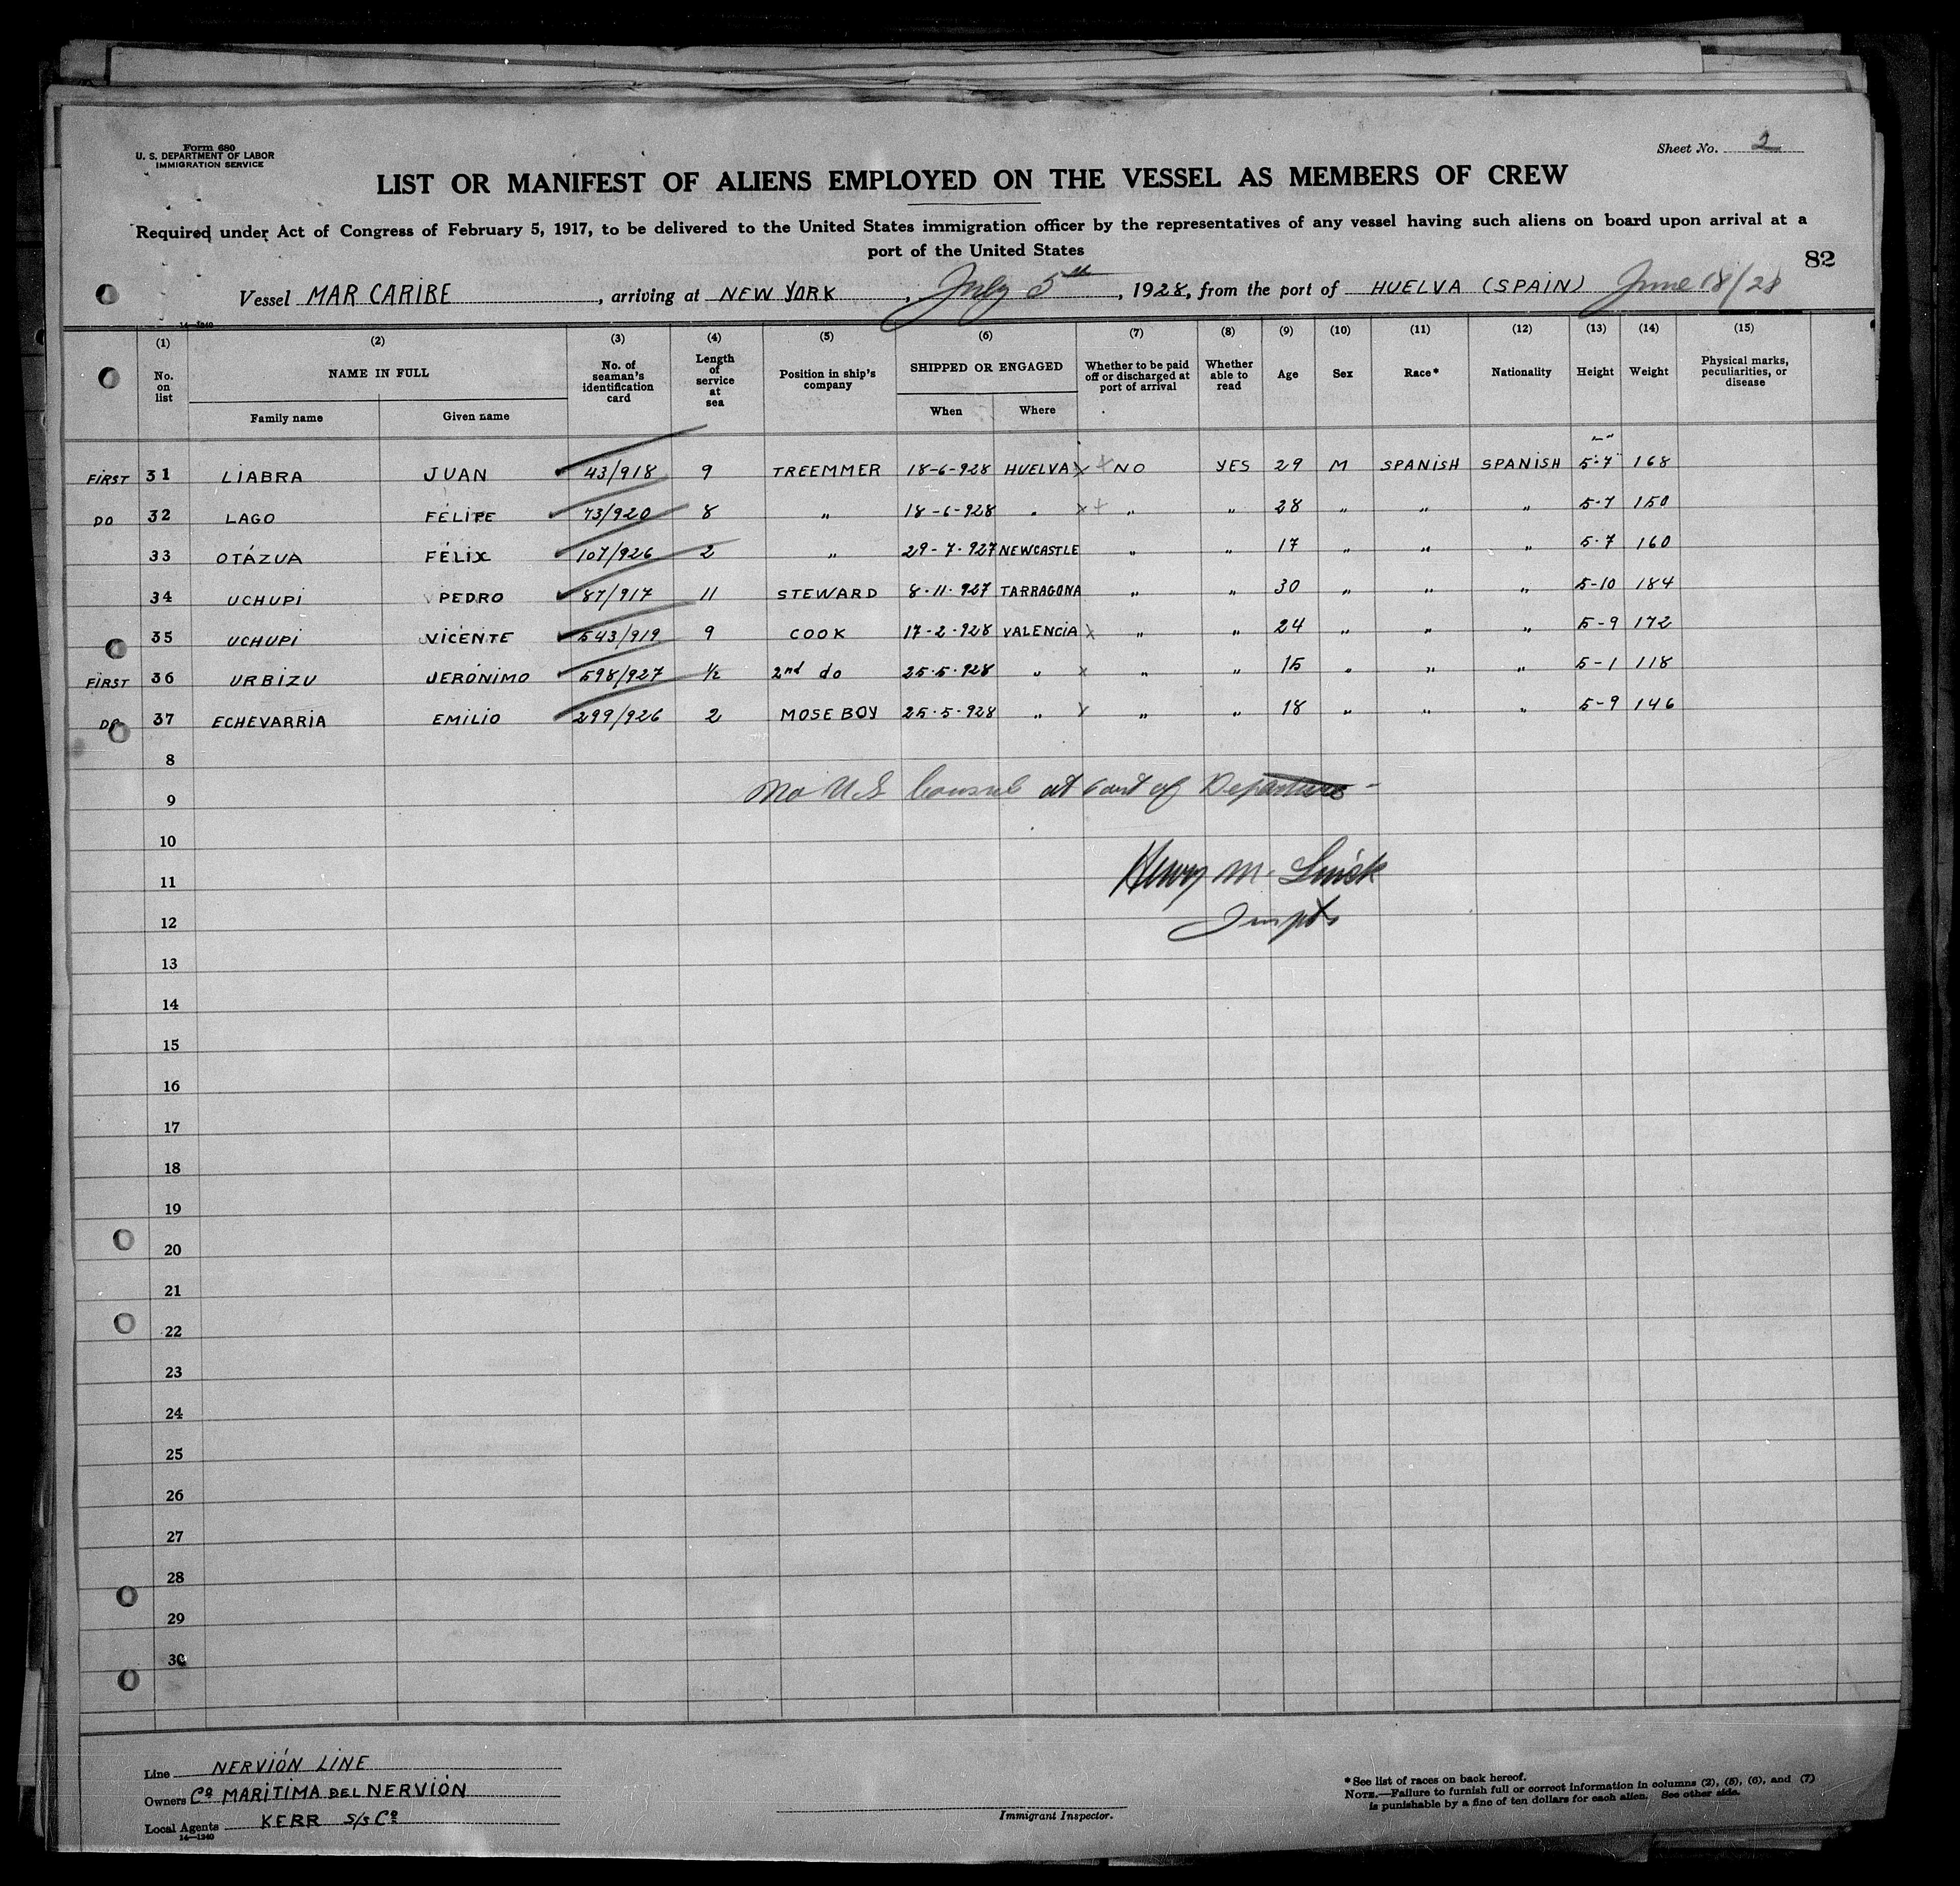 Form 680
U. S. DEPARTMENT OF LABOR
IMMIGRATION SERVICE
Sheet No. 2
LIST OR MANIFEST OF ALIENS EMPLOYED ON THE VESSEL AS MEMBERS OF CREW
Required under Act of Congress of February 5, 1917, to be delivered to the United States immigration officer by the representatives of any vessel having such aliens on board upon arrival at a
port of the United States
82
Vessel MAR CARIBE, arriving at NEW YORK, July 5th, 1928, from the port of HUELVA (SPAIN) June 18/28
14—1240
(1) (2) (3) (4) (5) (6) (7) (8) (9) (10) (11) (12) (13) (14) (15)
No. on list NAME IN FULL No. of seaman's identification card Length of service at sea Position in ship's company SHIPPED OR ENGAGED Whether to be paid off or discharged at port of arrival Whether able to read Age Sex Race* Nationality Height Weight Physical marks, peculiarities, or disease
Family name Given name When Where
FIRST 31 LIABRA JUAN 43/918 9 TREEMMER 18-6-928 HUELVA x + NO YES 29 M SPANISH SPANISH 5-7 168
DO 32 LAGO FÉLIPE 73/920 8 " 18-6-928 " x + " " 28 " " " 5-7 150
33 OTÁZUA FÉLIX 107/926 2 " 29-7-927 NEWCASTLE " " 17 " " " 5-7 160
34 UCHUPI PEDRO 87/917 11 STEWARD 8-11-927 TARRAGONA " " 30 " " " 5-10 184
35 UCHUPI VICENTE 543/919 9 COOK 17-2-928 VALENCIA x " " 24 " " " 5-9 172
FIRST 36 URBIZU JERÓNIMO 598/927 1/2 2nd do 25-5-928 " x " " 15 " " " 5-1 118
DO 37 ECHEVARRIA EMILIO 299/926 2 MOSE BOY 25-5-928 " x " " 18 " " " 5-9 146
8
No U.S. Consul at Port of Departure -
9
10
Henry M.
11
12
13
14
15
16
17
18
19
20
21
22
23
24
25
26
27
28
29
30
Line NERVIÓN LINE
Owners Cº MARITIMA DEL NERVIÓN
Local Agents KERR S/S Cº
14—1240
Immigrant Inspector.
*See list of races on back hereof.
NOTE.—Failure to furnish full or correct information in columns (2), (5), (6), and (7)
is punishable by a fine of ten dollars for each alien. See other side.